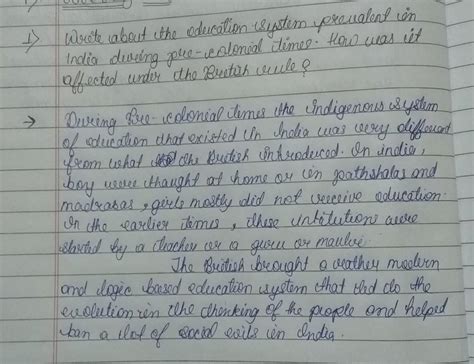 1) Wrote about the education system prevalent in
India during pre-colonial times. How was it
affected under the British rule?
→ During Pre-colonial times the Indigenous system
of education that existed in India was very different
from what the British introduced. In india,
boy were thaught at home or in paathshalas and
madrasas, girls mostly did not receive education.
In the earlier times, these intitutions were
started by a teacher or a guru or maulvi.
The British brought a rather modern
and logic based education system that led to the
evolution in the thinking of the people and helped
ban a lot of social evils in India.